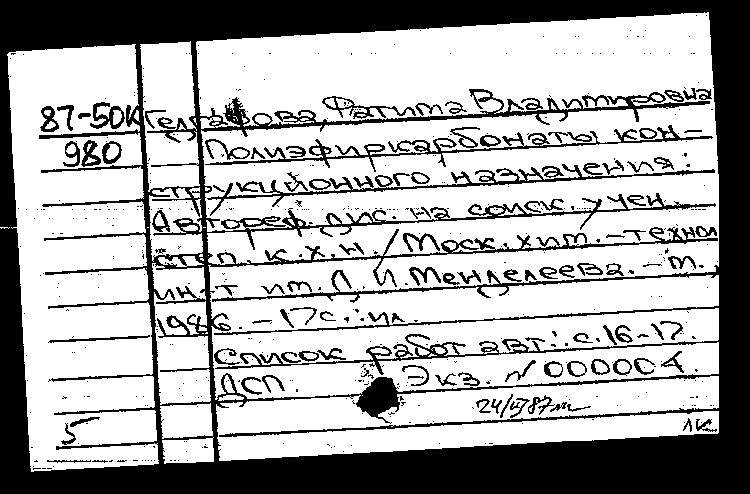 87-50К Гелдафова, Фатима Владимировна
980 Полиэфиркарбонаты кон-
струкционного назначения:
Автореф. дис. на соиск. учен.
степ. к.х.н. / Моск. хим.-технол
ин-т им. Д. И. Менделеева. - М.,
1986. - 17 с. : ил.
Список работ авт.: с. 16-17.
ДСП. Экз. № 000004.
5
ЛК